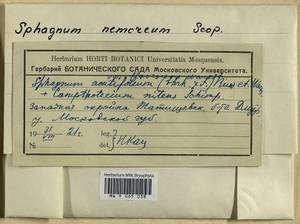 Sphagnum nemoreum Scop.
Herbarium HORTI BOTANICI Universitatis Mosquensis.
Гербарий БОТАНИЧЕСКОГО САДА Московского Университета.
Sphagnum acutifolium Ehrh.
+ Camptothecium nitens Schimp.
Западная окраина Татищевск. б-та Дмитр.
у. Московской губ.
19 31/VIII 21 г. leg.
№ det. Н Кац
Herbarium MW, Bryophyta
MW 9 005 038